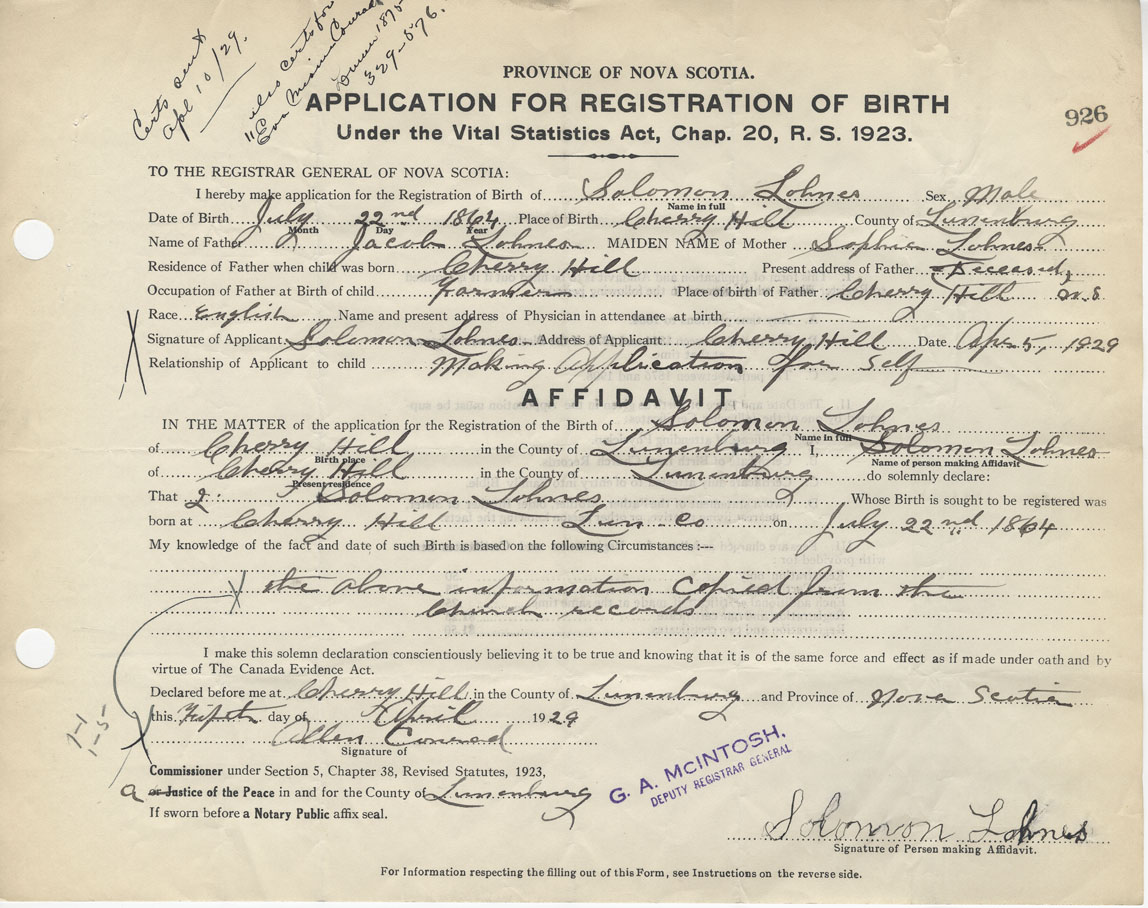 Certs sent
Apl 10/29.
also certs for
"Eva Minnie Conrad
Lunen 1875
329-576.
PROVINCE OF NOVA SCOTIA.
APPLICATION FOR REGISTRATION OF BIRTH
926
Under the Vital Statistics Act, Chap. 20, R. S. 1923.
TO THE REGISTRAR GENERAL OF NOVA SCOTIA:
I hereby make application for the Registration of Birth of Solomon Lohnes Sex Male
Name in full
Date of Birth July 22nd 1864 Place of Birth Cherry Hill County of Lunenburg
Month Day Year
Name of Father Jacob Lohnes MAIDEN NAME of Mother Sophia Lohnes
Residence of Father when child was born Cherry Hill Present address of Father Deceased
Occupation of Father at Birth of child Farmer Place of birth of Father Cherry Hill N.S
Race English Name and present address of Physician in attendance at birth
Signature of Applicant Solomon Lohnes Address of Applicant Cherry Hill Date Apr 5, 1929
Relationship of Applicant to child Making Application for Self
AFFIDAVIT
IN THE MATTER of the application for the Registration of the Birth of Solomon Lohnes
Name in full
of Cherry Hill in the County of Lunenburg I, Solomon Lohnes
Birth place Name of person making Affidavit
of Cherry Hill in the County of Lunenburg do solemnly declare:
Present residence
That I Solomon Lohnes Whose Birth is sought to be registered was
born at Cherry Hill Lun Co on July 22nd 1864
My knowledge of the fact and date of such Birth is based on the following Circumstances :---
the above information copied from the
Church records
I make this solemn declaration conscientiously believing it to be true and knowing that it is of the same force and effect as if made under oath and by
virtue of The Canada Evidence Act.
Declared before me at Cherry Hill in the County of Lunenburg and Province of Nova Scotia
this Fifth day of April 1929
Allen Conrad
Signature of
1-1
1-5
G. A. McINTOSH.
DEPUTY REGISTRAR GENERAL
Commissioner under Section 5, Chapter 38, Revised Statutes, 1923,
a or Justice of the Peace in and for the County of Lunenburg
If sworn before a Notary Public affix seal.
Solomon Lohnes
Signature of Person making Affidavit.
For Information respecting the filling out of this Form, see Instructions on the reverse side.